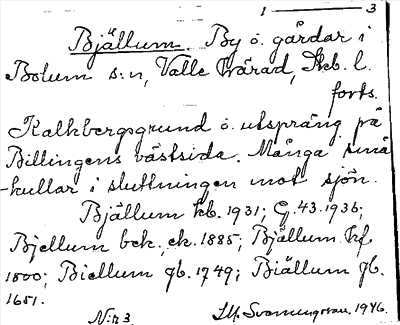 1 — 3
Bjällum. By o. gårdar i
Bolum s:n, Valle härad, Skb. l.
forts.
Kalkbergsgrund o. utsprång på
Billingens västsida. Många små
-kullar i sluttningen mot sjön.
Bjällum kb. 1931; G. 43. 1936;
Bjellum bek., ek. 1885; Bjällum kf.
1800; Biellum gb. 1749; Biällum jb.
1651.
N:r 3. 1946.